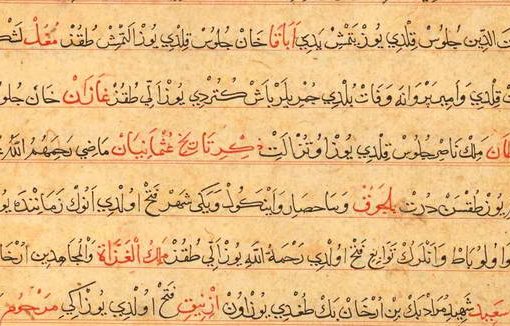 ت الدين جلوس قلدي يوز يتمش يدي اباقا خان جلوس قلدي يوز التمش طقز مغل لشك
ت قلدي وامير پروانه وفات بلدي جمريلر باش كتردي يوز اللي طقز غازان خان جلو
طان ملك ناصر جلوس قلدي يوز اوتز الت ذكر تاريخ عثمانيان ماضي رحمهم الله
يوز طقسن درت يلجوف وبساحصار واينه كول ويكي شهر فتح اولدي انوك زماننده يو
وا ولوباط وانلرك توابع فتح اولدي رحمة الله يوز اللي طقز ملك الغزاة والمجاهدين ارخا
سعيد شهيد مراد بك بن ارخان بك طغدي يوز اون ازنيق فتح اولدي يوز اكي مرحوم